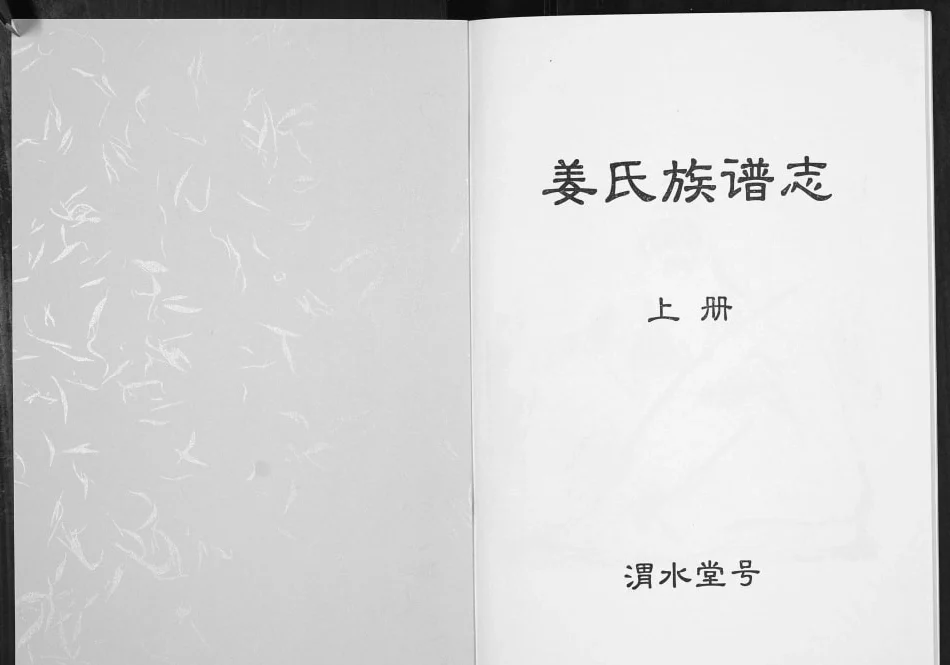 姜氏族谱志
上册
渭水堂号